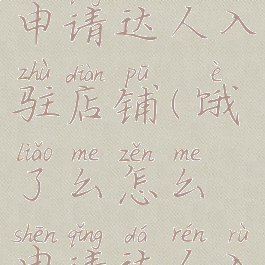 申请达人入
zhù diàn pū è
驻店铺(饿
liǎo me zěn me
了么怎么
shēn qǐng dá rén rù
申请达人入